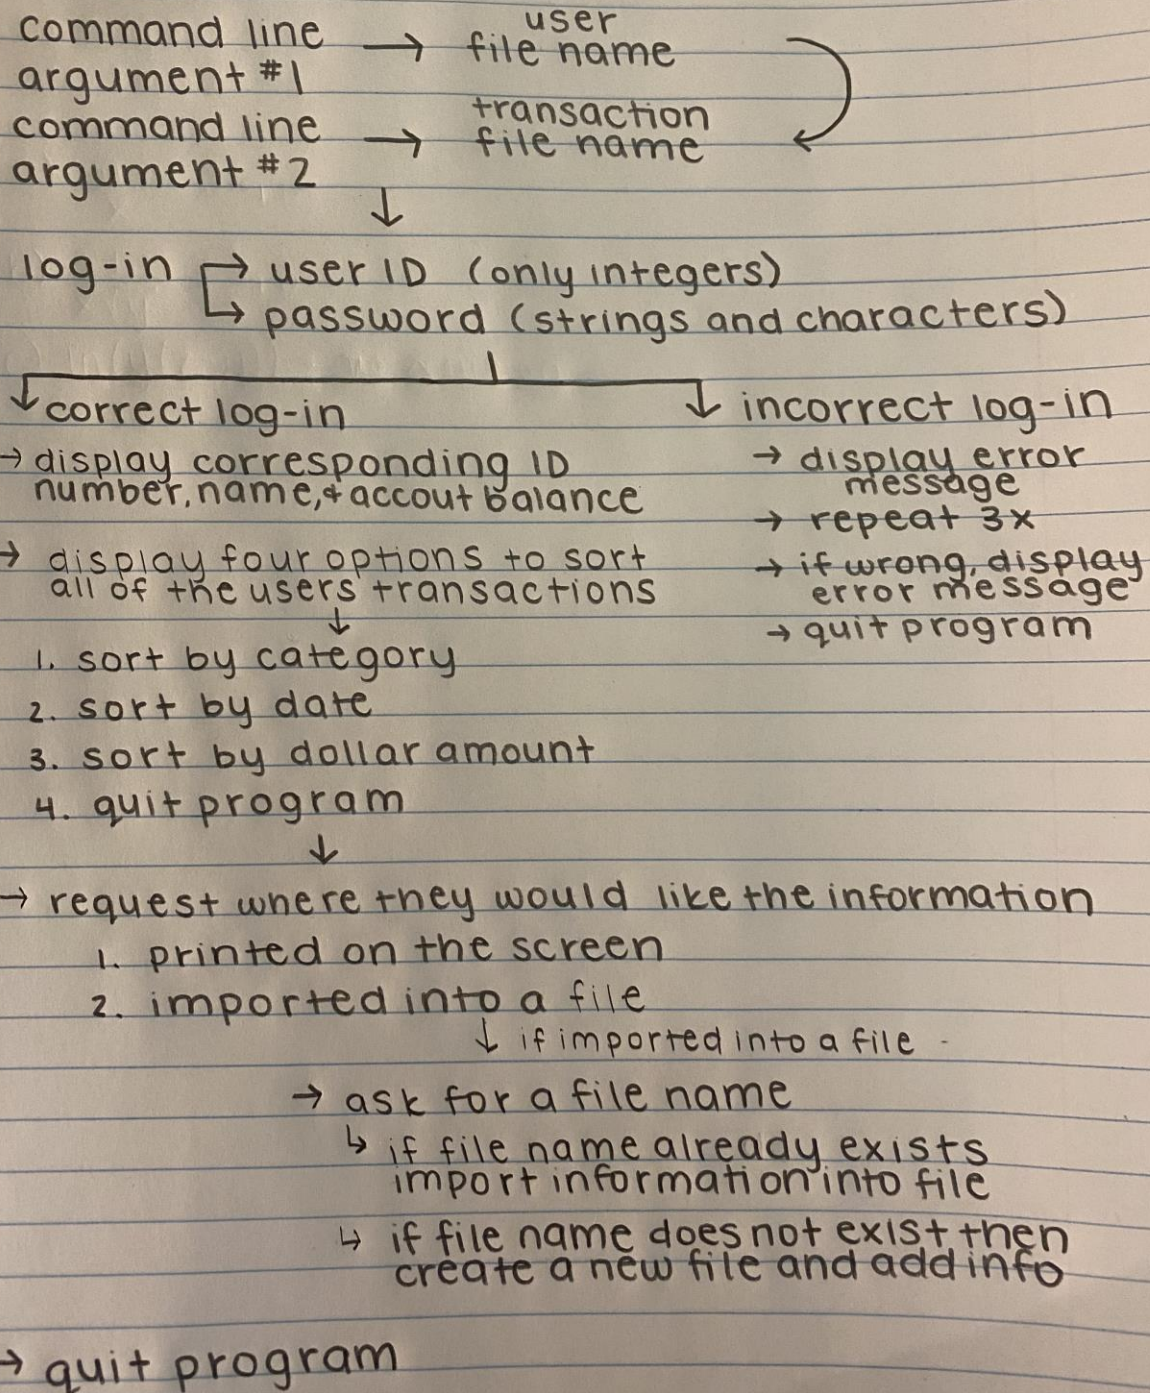 command line → user file name
argument #1
command line → transaction file name
argument #2
↓
log-in → user ID (only integers)
↳ password (strings and characters)
↓ correct log-in
→ display corresponding ID
number, name, & accout balance
→ display four options to sort
all of the users transactions
↓
1. sort by category
2. sort by date
3. sort by dollar amount
4. quit program
↓
↓ incorrect log-in
→ display error
message
→ repeat 3x
→ if wrong, display
error message
→ quit program
→ request where they would like the information
1. printed on the screen
2. imported into a file
↓ if imported into a file
→ ask for a file name
↳ if file name already exists
import information into file
↳ if file name does not exist then
create a new file and add info
→ quit program